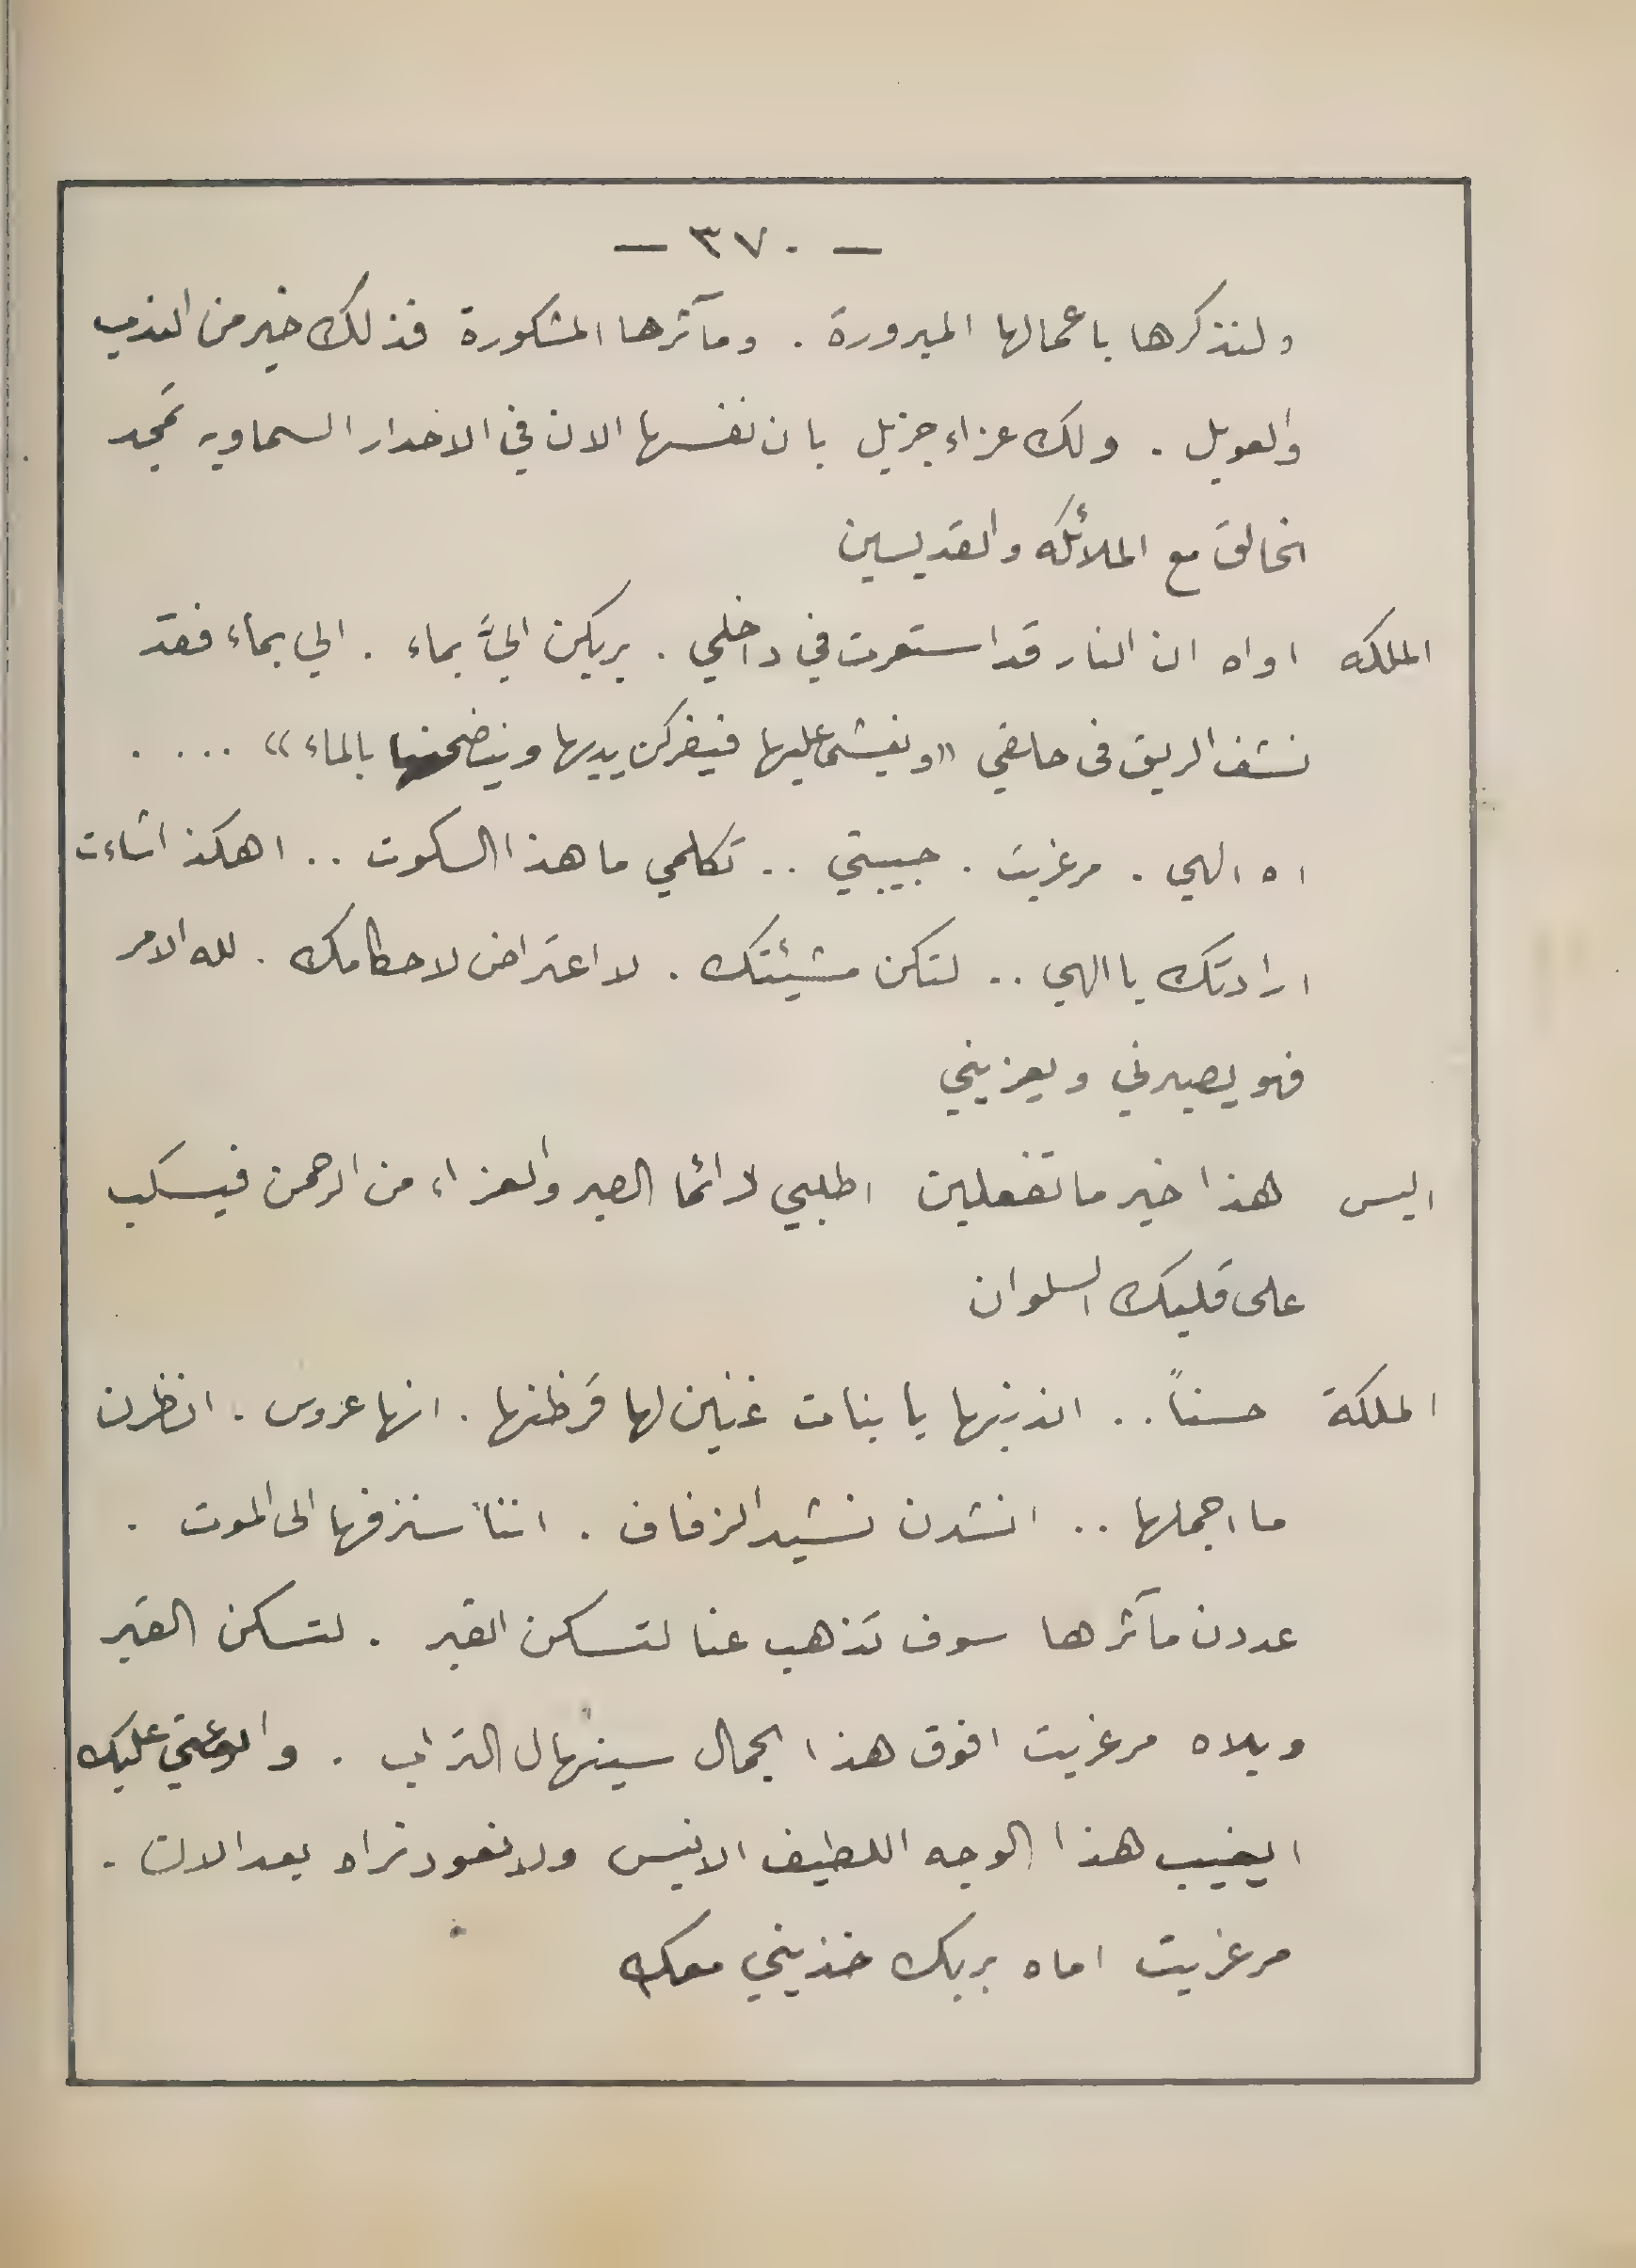 — ٣٧٠ —
ولنذكرها باعمالها المبرورة . ومآثرها المشكورة فذلك خير من الندب
والعويل . ولك عزاء جزيل بان نفسها الان في الاخدار السماويه تمجد
الخالق مع الملائكه والقديسين
الملكه اواه ان النار قد استعرت في داخلي . بربكن اليَّ بماء . الي بماء فقد
نشف الريق في حلقي «ويغشى عليها فيفركن يديها وينضحنها بالماء» ....
اه الهي . مرغريت . حبيبتي .. تكلمي ما هذا السكوت .. اهكذا شاءت
ارادتك يا الهي .. لتكن مشيئتك . لا اعتراض لاحكامك . لله الامر
فهو يصبرني ويعزيني
اليس هذا خير ما تفعلين اطلبي دائما الصبر والعزاء من الرحمن فيسكب
على قلبك السلوان
الملكة حسناً .. اندبنها يا بنات غنين لها قرظنها . انها عروس . انظرن
ما اجملها .. انشدن نشيد الزفاف . اننا سنزفها الى الموت .
عددن مآثرها سوف تذهب عنا لتسكن القبر . لتسكن القبر
ويلاه مرغريت افوق هذا الجمال سينهال التراب . والوعتي عليك
ايغيب هذا الوجه اللطيف الانيس ولا نعود نراه بعد الان .
مرغريت اماه بربك خذيني معك